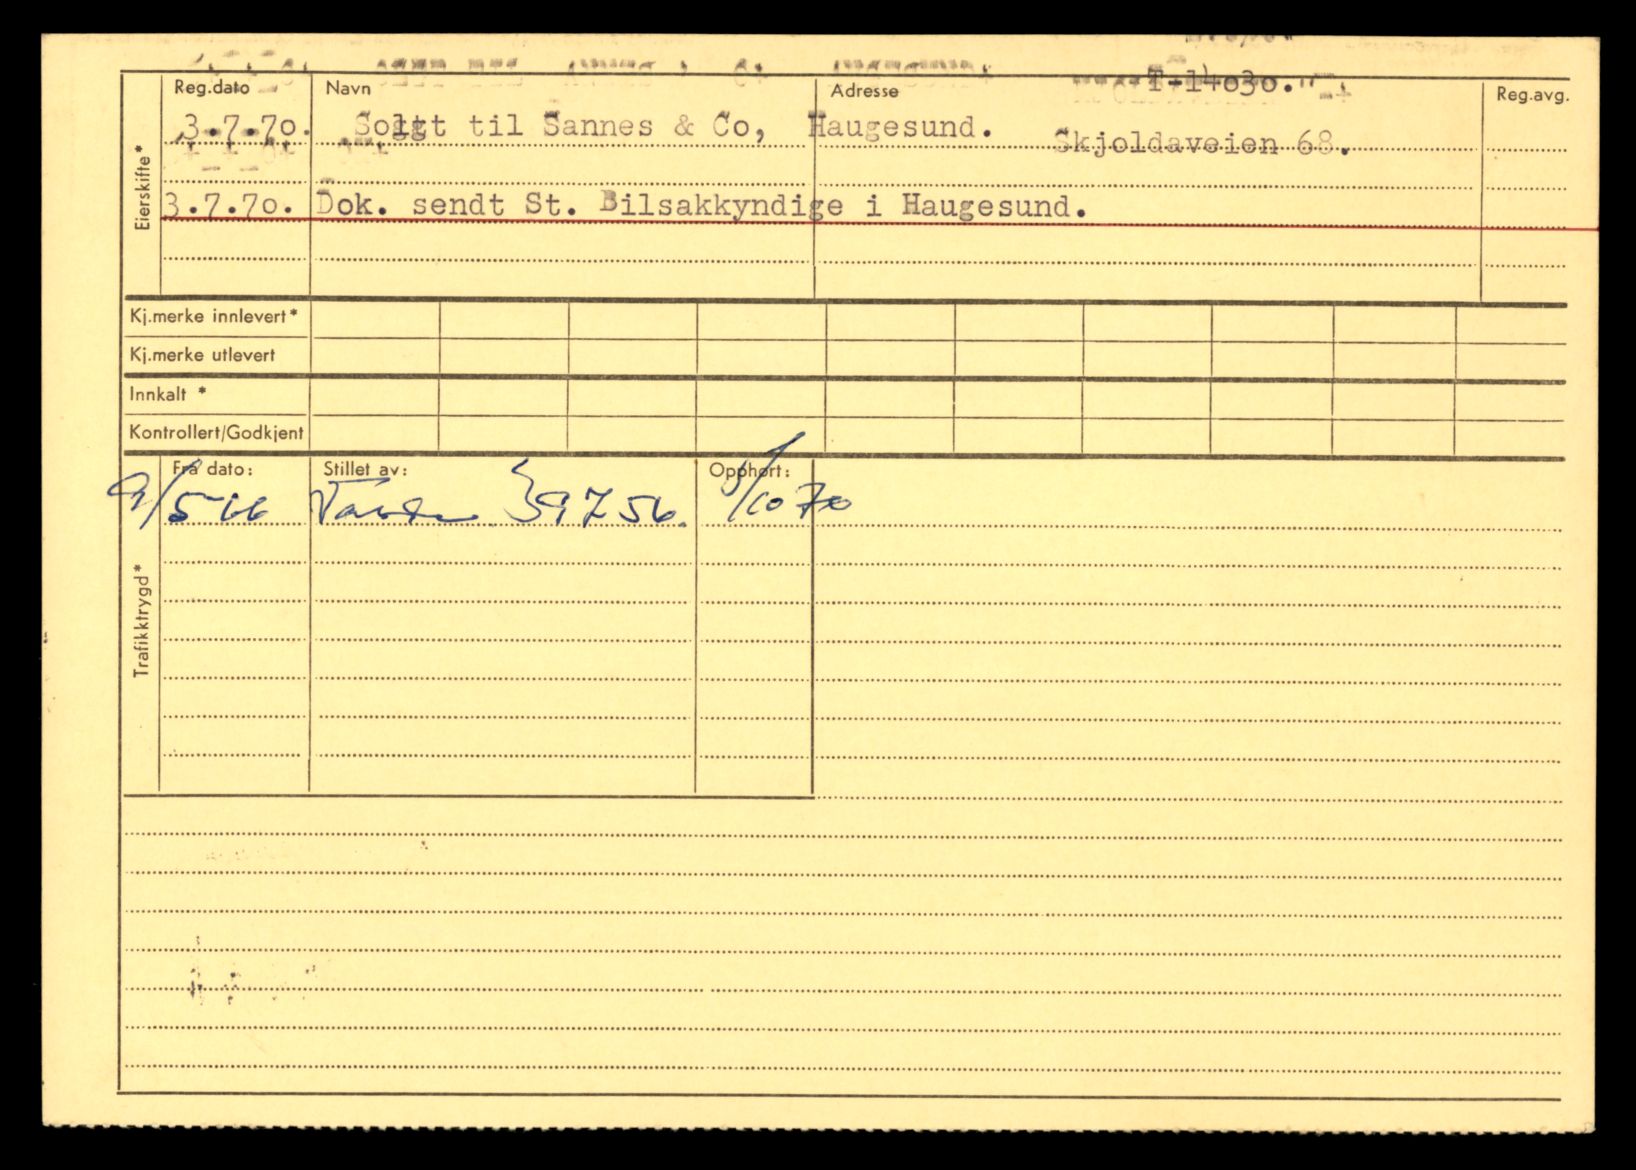 T-14030.
Reg.dato Navn Adresse Reg.avg.
3.7.70. Solgt til Sannes & Co, Haugesund. Skjoldaveien 68.
Eierskifte*
3.7.70. Dok. sendt St. Bilsakkyndige i Haugesund.
Kj.merke innlevert*
Kj.merke utlevert
Innkalt *
Kontrollert/Godkjent
Fra dato: Stillet av: Opphørt:
9/5 66 39756. 1/10 70
Trafikktrygd*